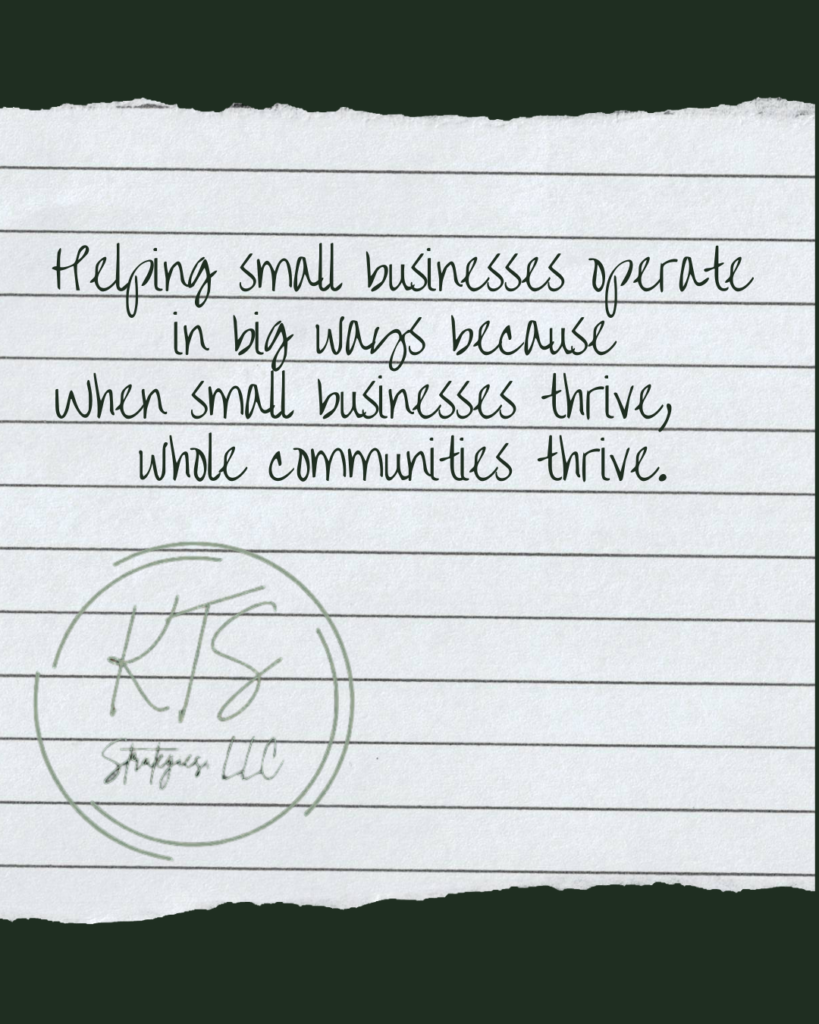 Helping small businesses operate
in big ways because
when small businesses thrive,
whole communities thrive.
KTS
Strategies, LLC